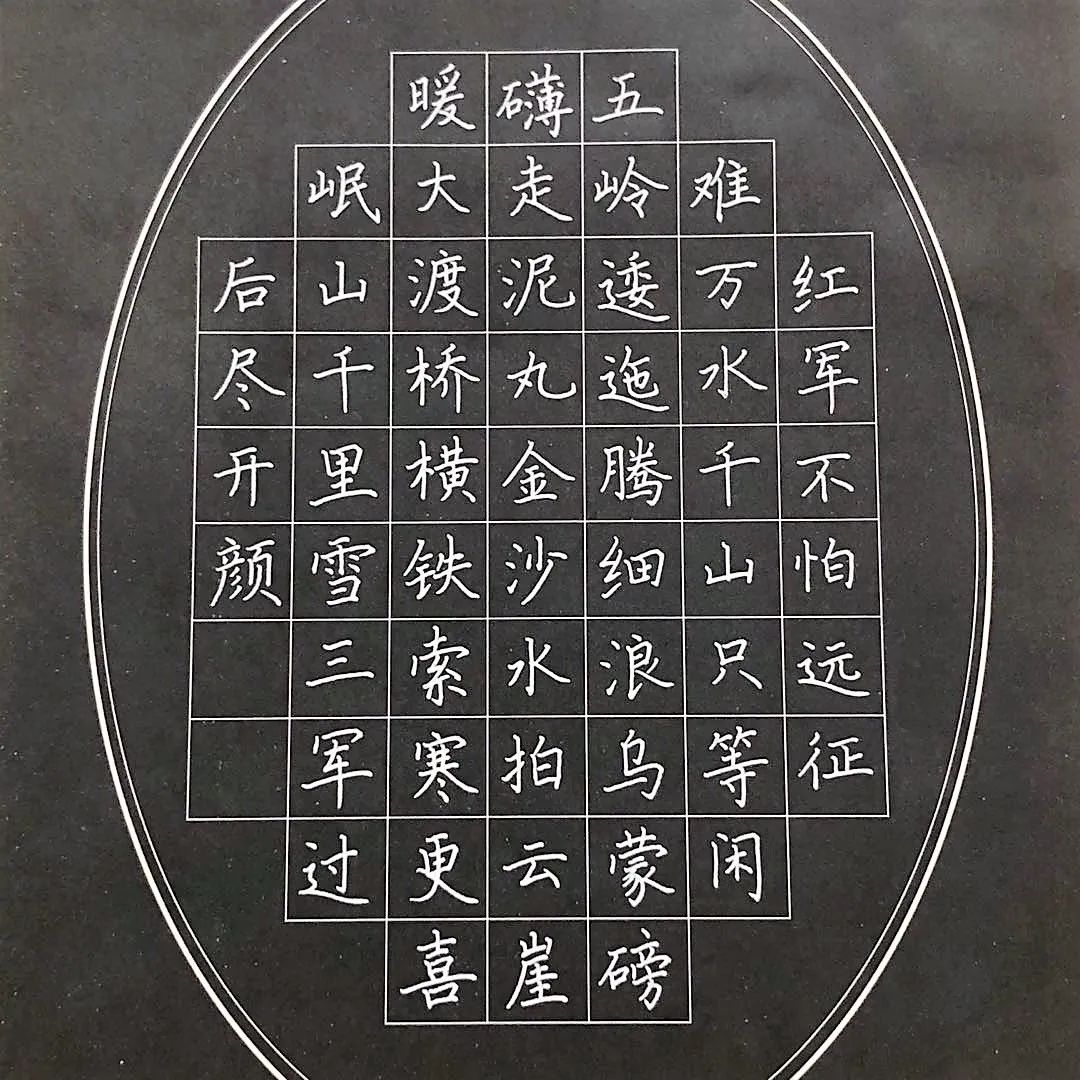 红军不怕远征
难万水千山只等闲
五岭逶迤腾细浪乌蒙磅
礴走泥丸金沙水拍云崖
暖大渡桥横铁索寒更喜
岷山千里雪三军过
后尽开颜